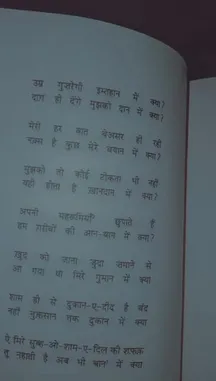 उम्र गुज़रेगी इम्तहान में क्या?
दाग़ ही देंगे मुझको दान में क्या?
मेरी हर बात बेअसर ही रही
नक़्स है कुछ मेरे बयान में क्या?
मुझको तो कोई टोकता भी नहीं
यही होता है ख़ानदान में क्या?
अपनी महरूमियाँ छुपाते हैं
हम ग़रीबों की आन-बान में क्या?
ख़ुद को जाना जुदा ज़माने से
आ गया था मिरे गुमान में क्या
शाम ही से दुकान-ए-दीद है बंद
नहीं नुक़सान तक दुकान में क्या
ऐ मिरे सुब्ह-ओ-शाम-ए-दिल की शफ़क़
तू नहाती है अब भी बान में क्या